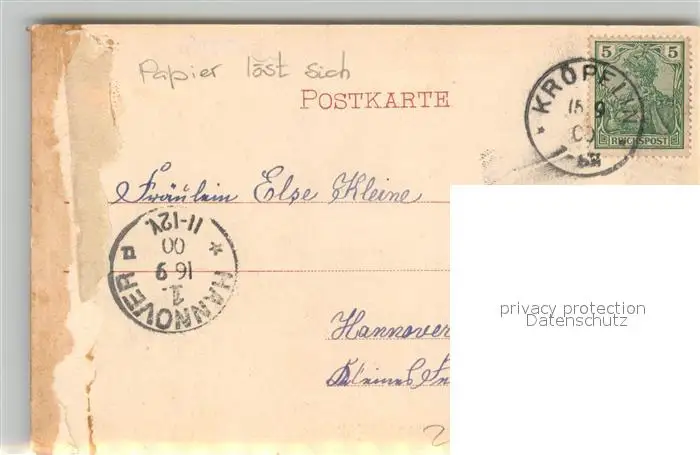 Papier löst sich
POSTKARTE
5 5
REICHSPOST
KRÖPELIN
15 9
00
Fräulein Else Kleine
HANNOVER
1.
16 9
00
11-12V.
Hannover
privacy protection
Datenschutz
2